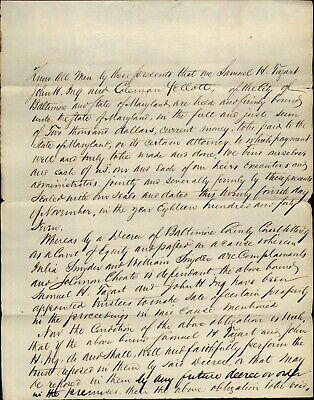 Know All Men by these presents that we Samuel H. Tagart
John H. Ing and Coleman Yellott, of the City of
Baltimore and State of Maryland, are held and firmly bound
unto the State of Maryland, in the full and just sum
of Six thousand dollars, current money, to be paid to the
State of Maryland, or its certain attorney. To which payment
well and truly to be made and done, We bind ourselves
and each of us, our and each of our Heirs Executors and
administrators jointly and severally firmly by these presents
Sealed with our seals and dated this twenty fourth day
of November, in the year Eighteen hundred and forty
Seven.
Whereas by a Decree of Baltimore County Court sitting
as a Court of Equity and passed in a cause wherein
Julia Snyder and William Snyder are Complainants
and Solomon Choate is defendant the above bound
Samuel H. Tagart and John H Ing have been
appointed trustees to make sale of certain property
in the proceedings in said cause mentioned
Now the Condition of the above obligation is such,
that, if the above bound Samuel H. Tagart and John
H. Ing, do and shall well and faithfully perform the
trust reposed in them by said Decree or that may
be reposed in them by any future decree or order
in the premises, then the above obligation to be void,